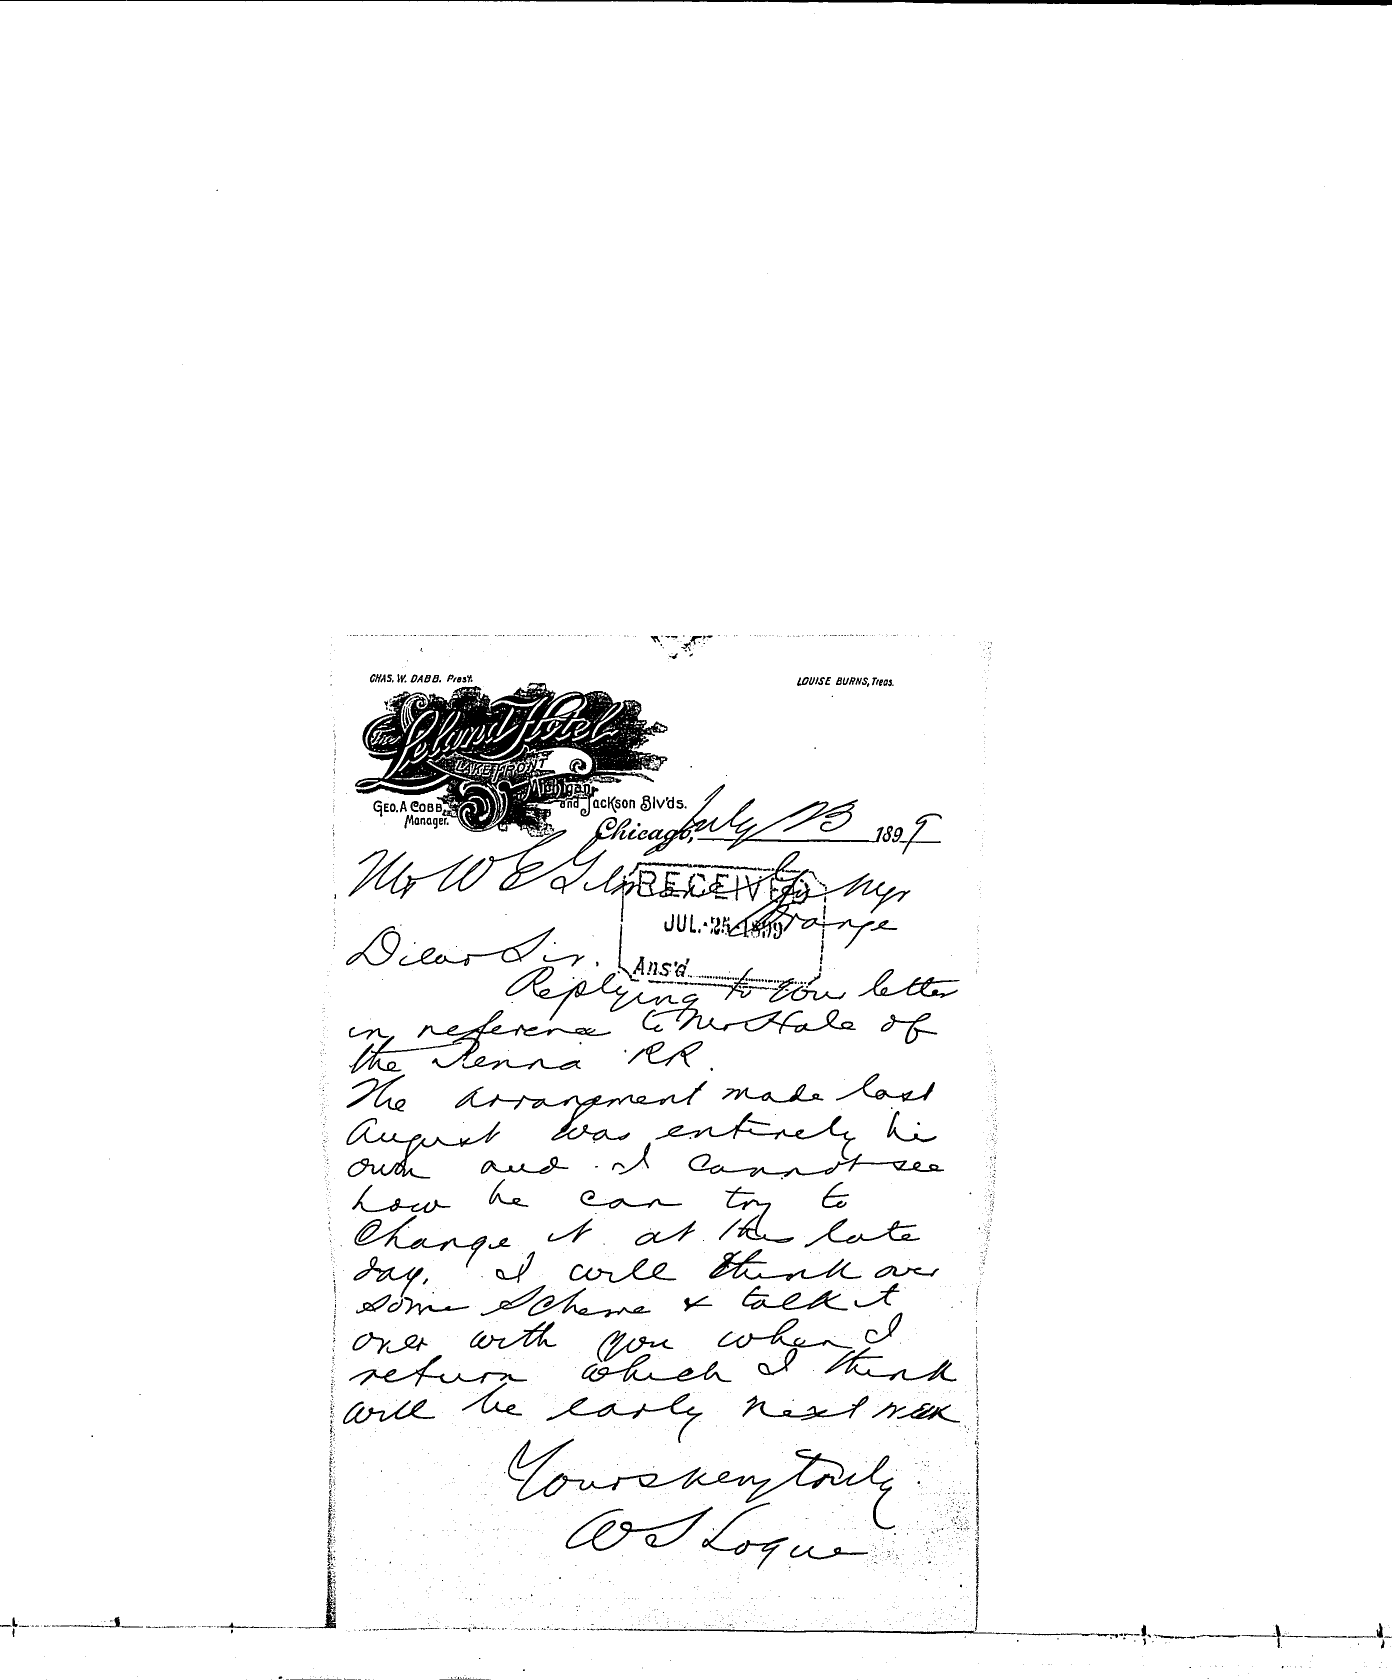 CHAS. W. DABB. Prest. LOUISE BURNS, Treas.
The Leland Hotel
LAKE FRONT
Michigan
and Jackson Blv'ds.
GEO. A COBB,
Manager.
Chicago, July 23 1899
Mr W E Gilmore Gn Mgr
Orange
RECEIVED
JUL. 25 1899
Ans'd
Dear Sir.
Replying to your letter
in reference to Mr Hale of
the Penna RR.
The arrangement made last
August was entirely his
own and I cannot see
how he can try to
change it at this late
day. I will think over
some scheme & talk it
over with you when I
return which I think
will be early next week
Yours very truly
W S Logue